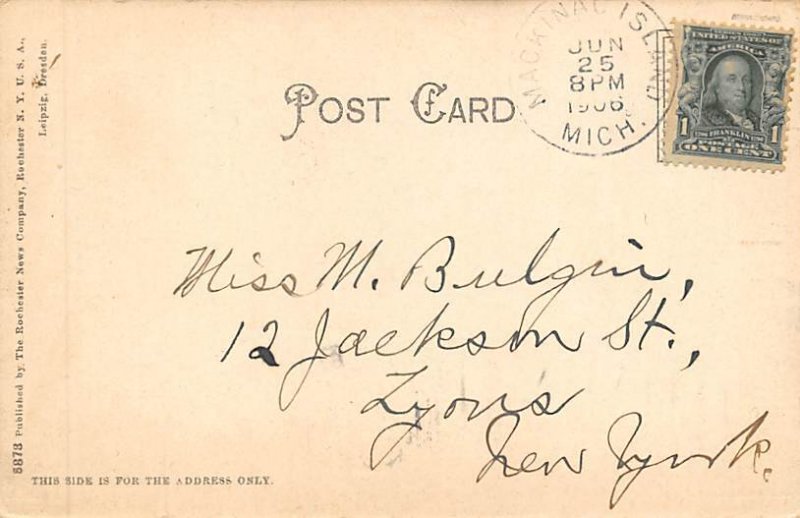 POST CARD
MACKINAC ISLAND
JUN
25
8 PM
1906
MICH.
SERIES 1902
UNITED STATES OF
AMERICA
1 FRANKLIN 1
POSTAGE
ONE CENT
Miss M. Bulgin,
12 Jackson St.,
Lyons
New York.
THIS SIDE IS FOR THE ADDRESS ONLY.
5873 Published by The Rochester News Company, Rochester N. Y. U. S. A.,
Leipzig, Dresden.